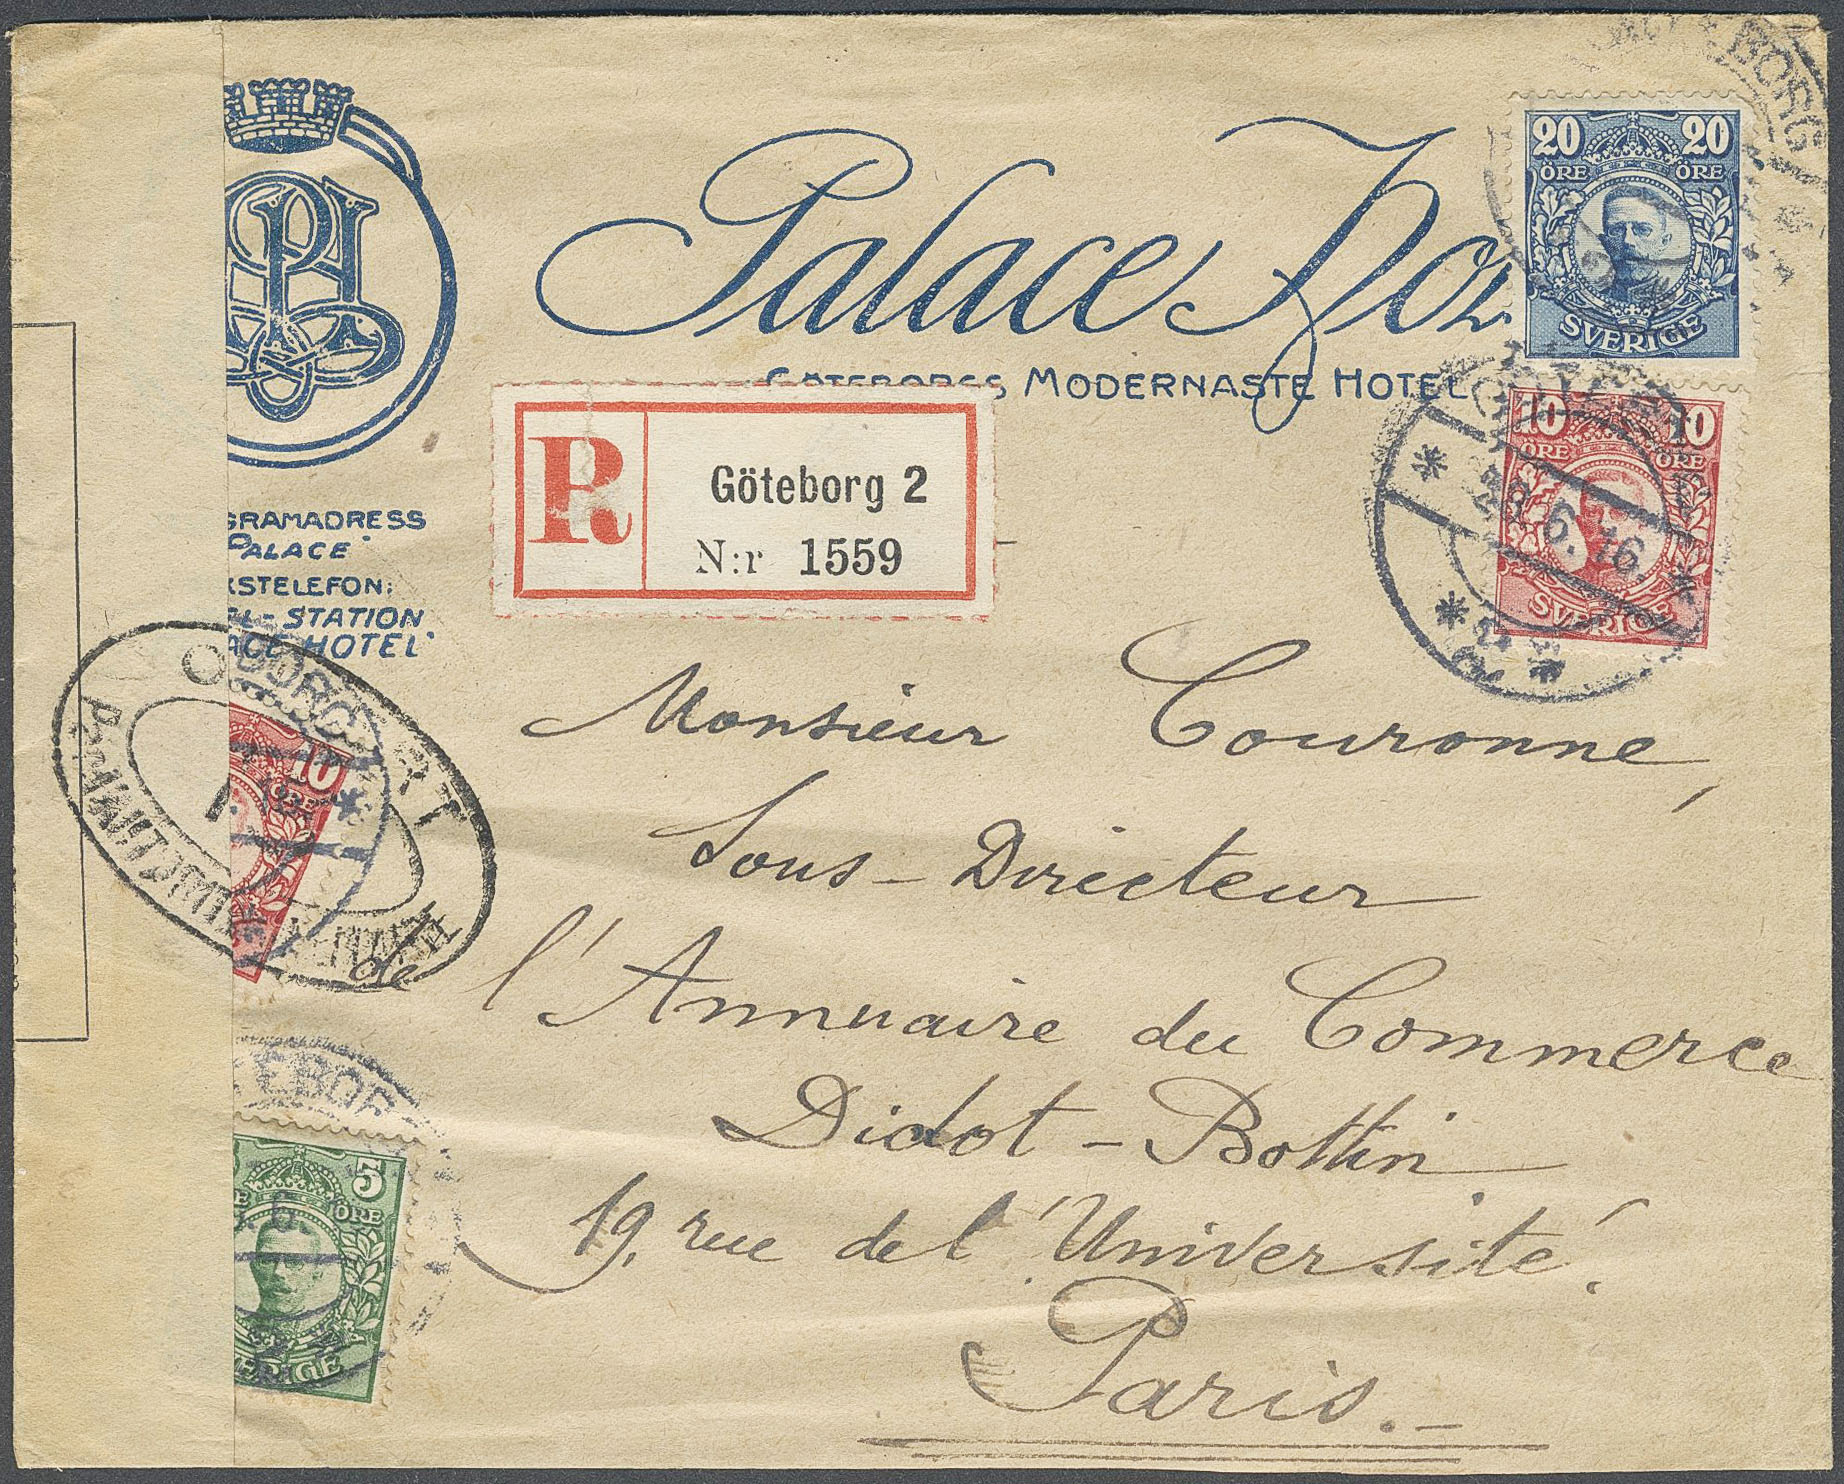 PH
Palace
GÖTEBORGS MODERNASTE HOTEL
GRAMADRESS
PALACE
KSTELEFON:
STATION
HOTEL
R
Göteborg 2
N:r 1559
20 20
ÖRE ÖRE
SVERIGE
BORG
10 10
ÖRE ÖRE
SVERIGE
28 6. 16.
Monsieur Couronne,
Sous-Directeur
de l'Annuaire du Commerce
Didot-Bottin
19, rue de l'Université.
Paris.-
10
ÖRE
5
ÖRE
ERIGE